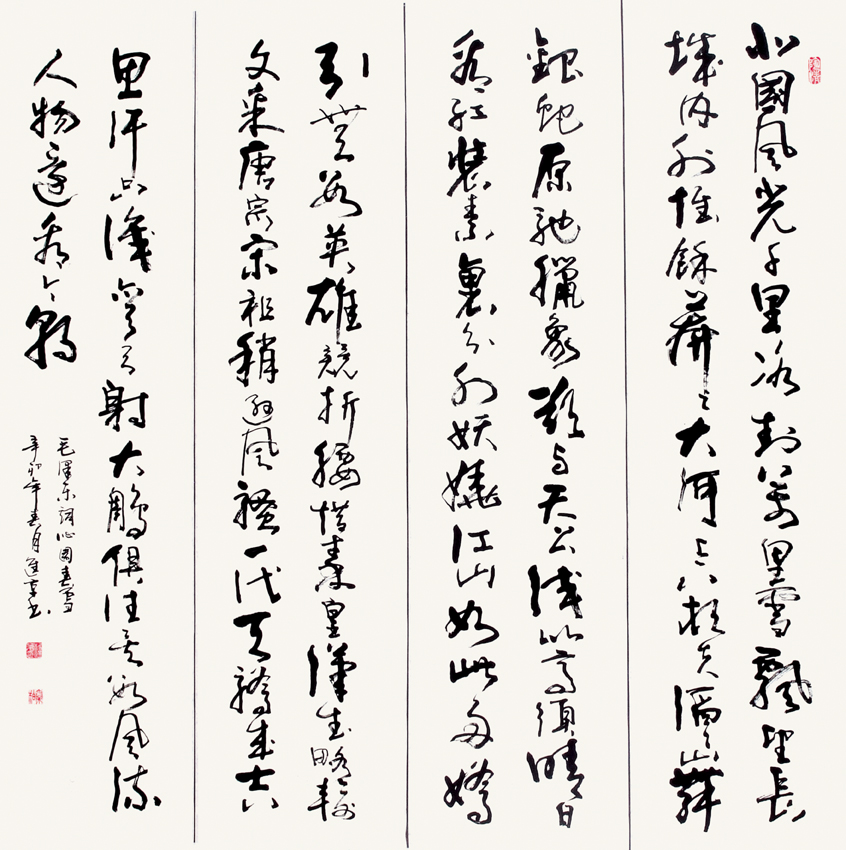 北國風光千里冰封萬里雪飄望長
城内外惟餘莽々大河上下頓失滔々山舞
銀蛇原馳臘象欲与天公試比高須晴日
看紅裝素裹分外妖嬈江山如此多嬌
引無數英雄競折腰惜秦皇漢武略輸
文采唐宗宋祖稍遜風騷一代天驕成吉
思汗只識彎弓射大鵰俱往矣數風流
人物還看今朝
毛澤東詞沁園春雪
辛卯年春月